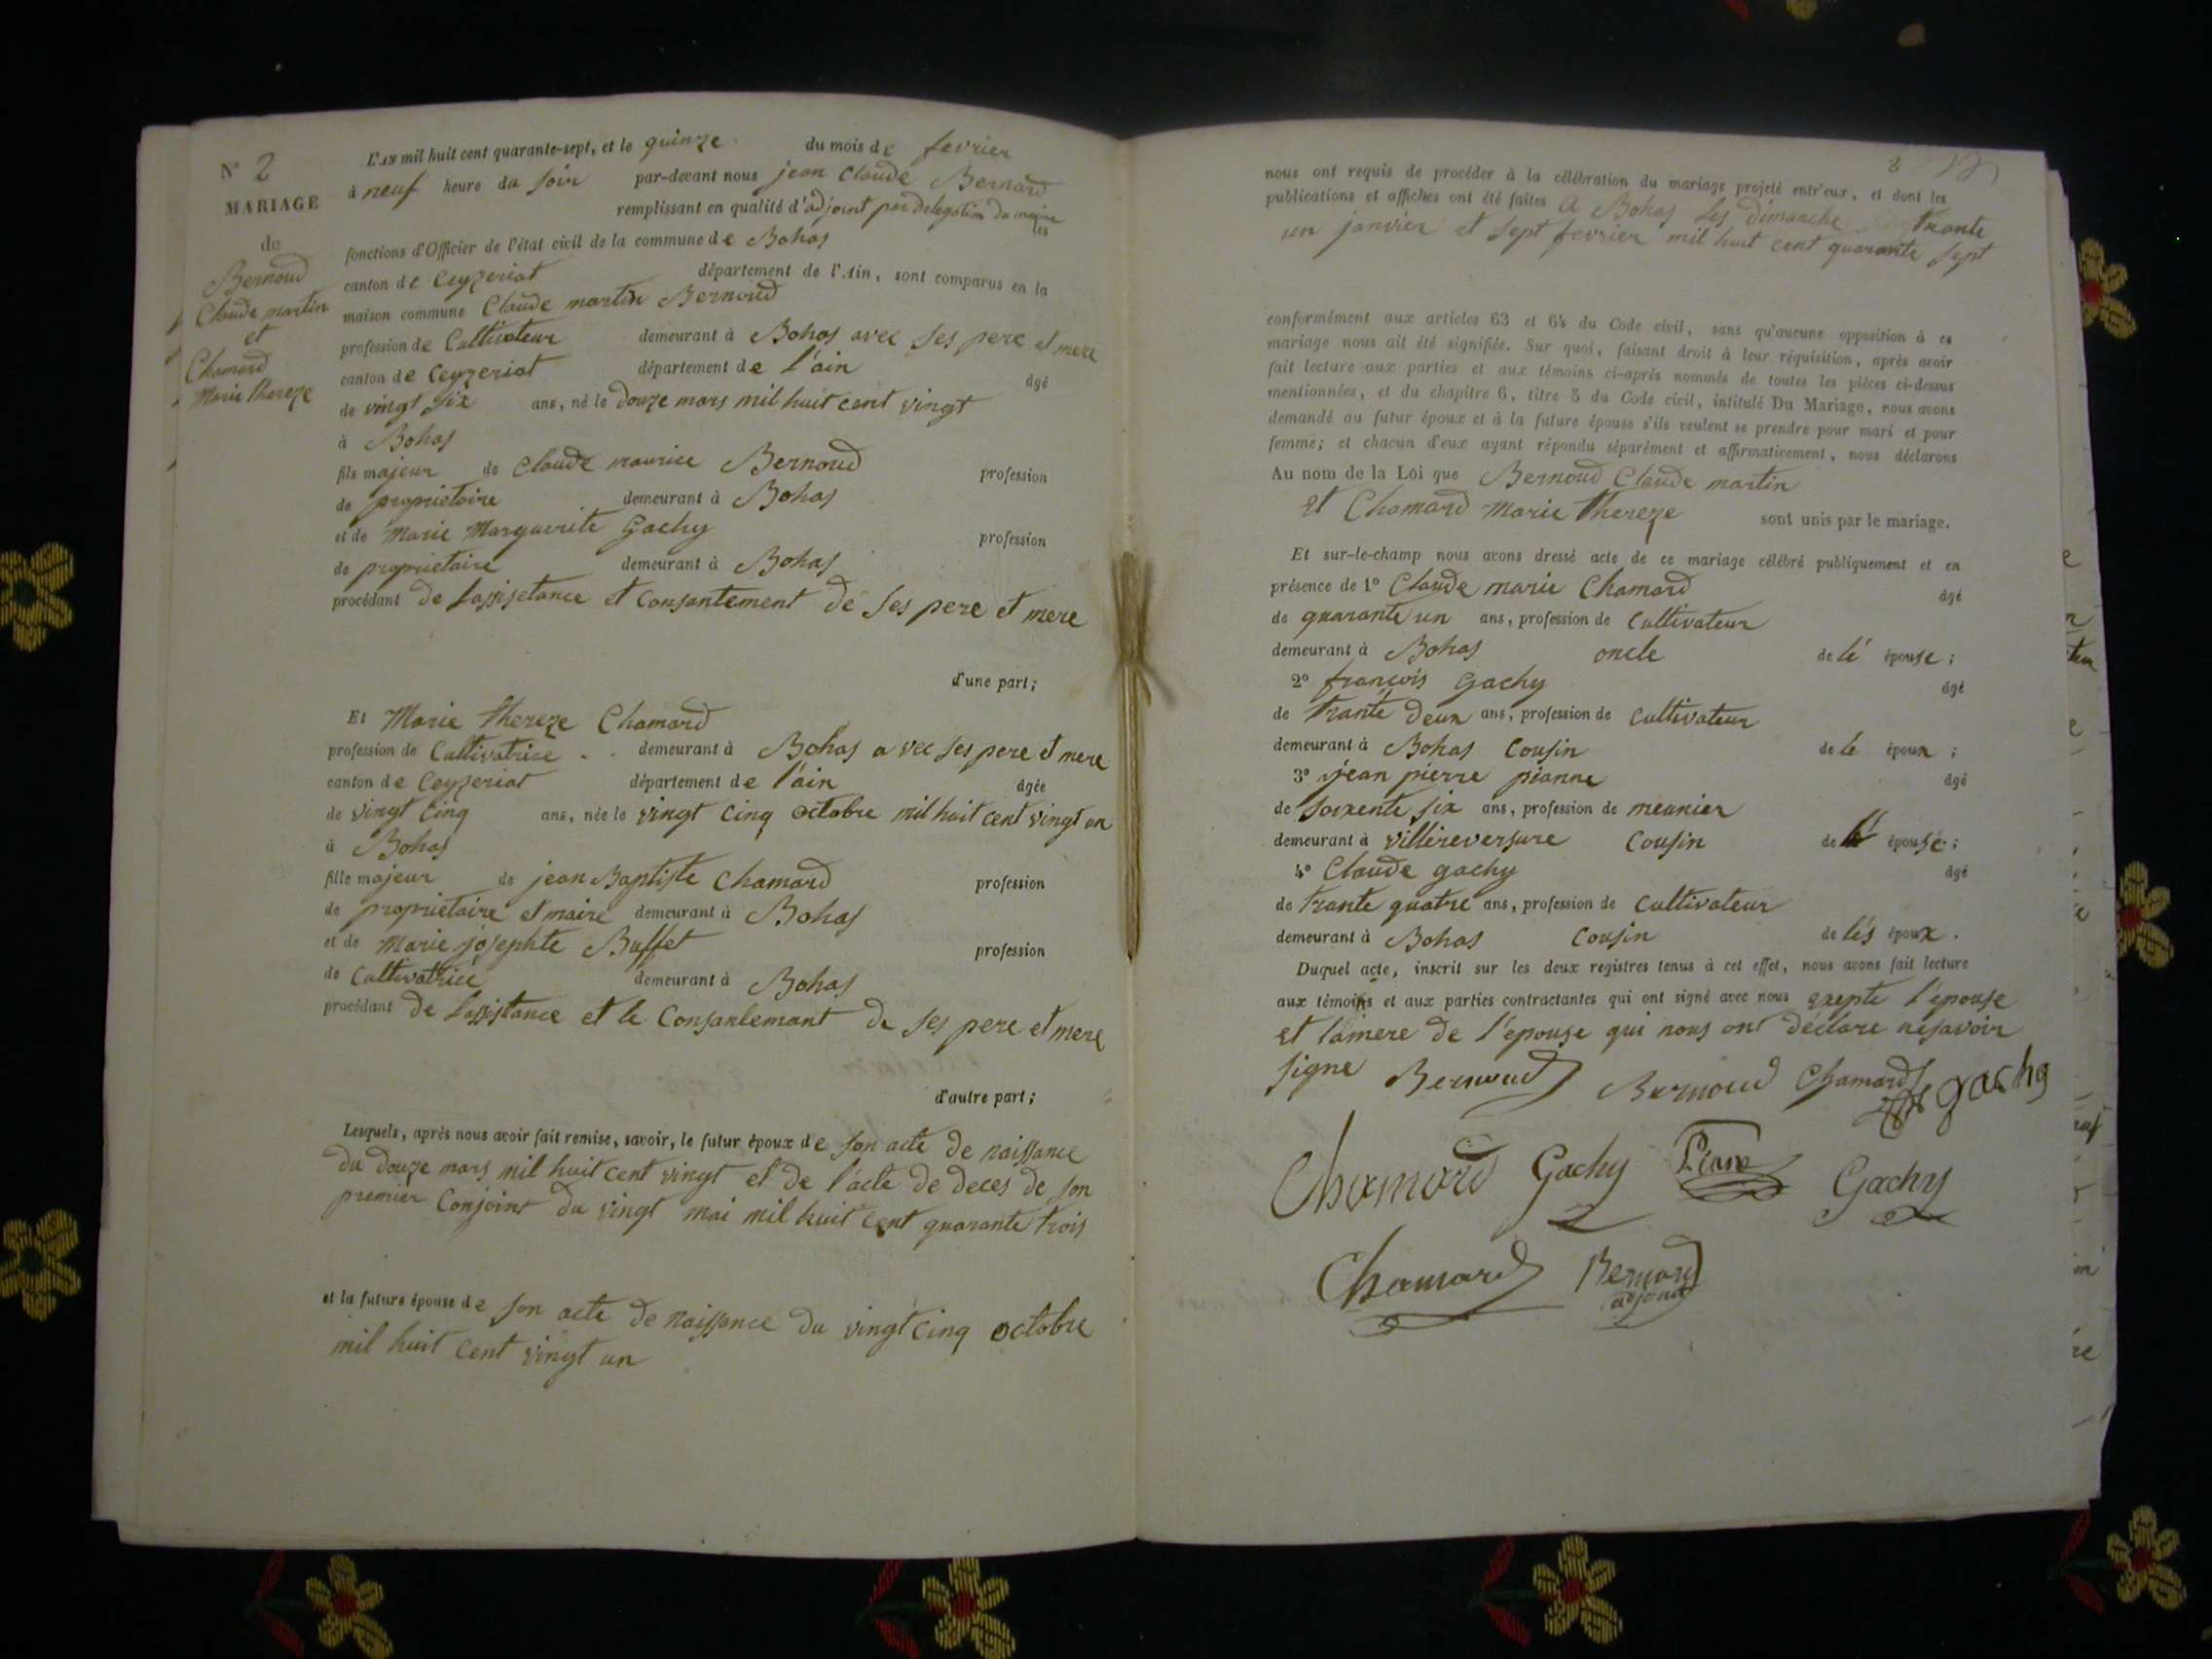 N° 2
MARIAGE
de
Bernoud
Claude martin
et
Chamard
Marie thereze
L'AN mil huit cent quarante-sept, et le quinze du mois de fevrier
à neuf heure du soir par-devant nous jean claude Bernard
remplissant en qualité d'adjoint par delegation du maire les
fonctions d'Officier de l'état civil de la commune de Bohas
canton de Ceyzeriat département de l'Ain, sont comparus en la
maison commune Claude martin Bernoud
profession de Cultivateur demeurant à Bohas avec ses pere et mere
canton de Ceyzeriat département de l'ain âgé
de vingt six ans, né le douze mars mil huit cent vingt
à Bohas
fils majeur de Claude maurice Bernoud profession
de proprietaire demeurant à Bohas
et de Marie Marguerite Gachy profession
de proprietaire demeurant à Bohas
procédant de Lassisetance et Consantement de ses pere et mere
d'une part;
Et Marie thereze Chamard
profession de Cultivatrice demeurant à Bohas avec ses pere et mere
canton de Ceyzeriat département de l'ain âgée
de vingt cinq ans, née le vingt cinq octobre mil huit cent vingt un
à Bohas
fille majeur de jean Baptiste Chamard profession
de proprietaire et maire demeurant à Bohas
et de Marie josephte Buffet profession
de Cultivatrice demeurant à Bohas
procédant de Lassistance et le Consantemant de ses pere et mere
d'autre part;
Lesquels, après nous avoir fait remise, savoir, le futur époux de son acte de naissance
du douze mars mil huit cent vingt et de l'acte de deces de son
premier Conjoint du vingt mai mil huit cent quarante trois
et la future épouse de son acte de naissance du vingt cinq octobre
mil huit cent vingt un
2
nous ont requis de procéder à la célébration du mariage projeté entr'eux, et dont les
publications et affiches ont été faites a Bohas les dimanche trante
un janvier et sept fevrier mil huit cent quarante sept
conformément aux articles 63 et 64 du Code civil, sans qu'aucune opposition à ce
mariage nous ait été signifiée. Sur quoi, faisant droit à leur réquisition, après avoir
fait lecture aux parties et aux témoins ci-après nommés de toutes les pièces ci-dessus
mentionnées, et du chapitre 6, titre 5 du Code civil, intitulé Du Mariage, nous avons
demandé au futur époux et à la future épouse s'ils veulent se prendre pour mari et pour
femme; et chacun d'eux ayant répondu séparément et affirmativement, nous déclarons
Au nom de la Loi que Bernoud Claude martin
et Chamard marie thereze sont unis par le mariage.
Et sur-le-champ nous avons dressé acte de ce mariage célébré publiquement et en
présence de 1° Claude marie Chamard âgé
de quarante un ans, profession de Cultivateur
demeurant à Bohas oncle de lé épouse;
2° françois Gachy âgé
de trante deux ans, profession de Cultivateur
demeurant à Bohas Cousin de le époux;
3° jean pierre pianne âgé
de soixente six ans, profession de meunier
demeurant à villereversure Cousin de lé épouse;
4° Claude gachy âgé
de trante quatre ans, profession de Cultivateur
demeurant à Bohas Cousin de lés époux.
Duquel acte, inscrit sur les deux registres tenus à cet effet, nous avons fait lecture
aux témoins et aux parties contractantes qui ont signé avec nous exepte l'epouse
et lamere de l'epouse qui nous ont déclare nesavoir
signe Bernoud Bernoud Chamard gachy
Chamard Gachy Piane Gachy
Chamard Bernard
adjoint